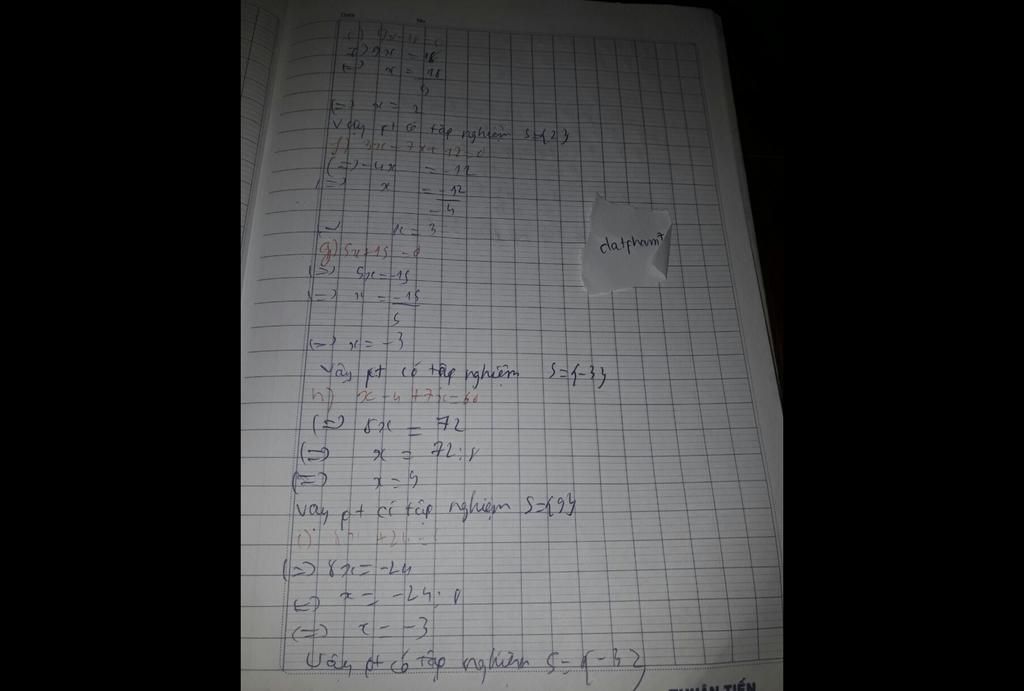 (=) 9x = 18
(=) x = 18
9
(=) x = 2
Vậy pt có tập nghiệm S={2}
f) 3x - 7x + 12 = 0
(=) -4x = -12
(=) x = -12
-4
x = 3
datpham
g) 5x+15 = 0
(=) 5x = -15
(=) x = -15
5
(=) x = -3
Vậy pt có tập nghiệm S={-3}
h) x - 4 + 7x =
(=) 8x = 72
(=) x = 72:8
(=) x = 9
Vậy pt có tập nghiệm S={9}
i) +24 =
(=) 8x = -24
(=) x = -24:8
(=) x = -3
Vậy pt có tập nghiệm S={-3}
TIẾN